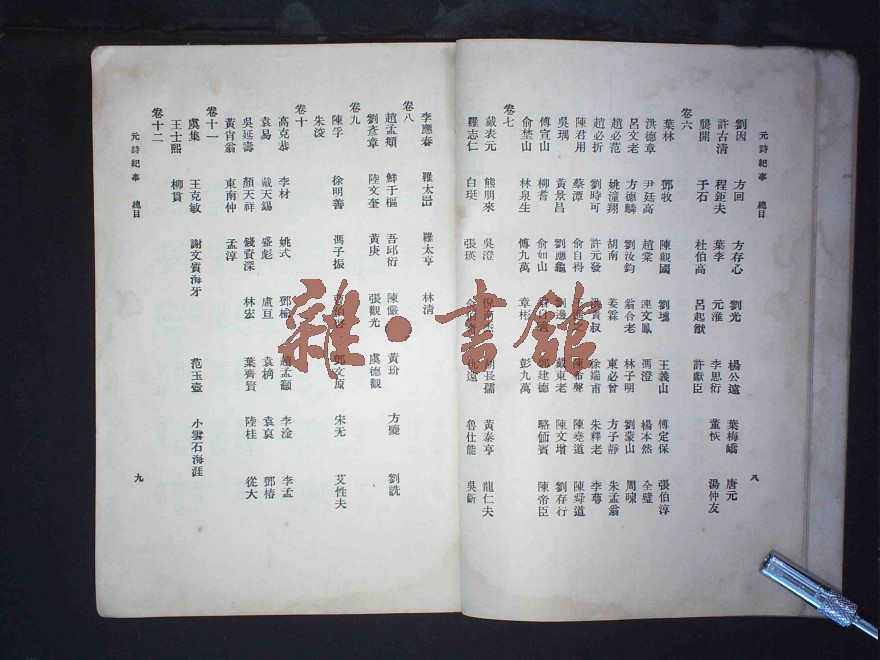 元詩紀事 總目 八
劉因 方回 方存心 劉光 楊公遠 葉梅嶠 唐元
許古清 程鉅夫 葉李 元淮 李思衍 董恢 湯仲友
龔開 于石 杜伯高 呂起猷 許獻臣
卷六
葉林 鄧牧 陳觀國 劉壎 王義山 傅定保 張伯淳
洪德章 尹廷高 趙棠 連文鳳 馮澄 楊本然 仝璧
呂文老 方德麟 劉汝鈞 翁合老 林子明 劉蒙山 周暕
趙必范 姚潼翔 胡南 姜霖 東必曾 方子靜 朱孟翁
趙必拆 劉時可 許元發 叔 徐端甫 朱釋老 李蕚
陳君用 蔡潭 俞自得 陳希聲 陳堯道 陳舜道
吳瑀 黃景昌 劉應龜 劉邊 戴東老 陳文增 劉存行
傅宣山 柳蓍 俞如山 建德 駱偭賓 陳帝臣
俞埜山 林泉生 傅九萬 章彬 彭九萬
卷七
戴表元 熊朋來 吳澄 長孺 黃泰亨 龍仁夫
羅志仁 白珽 張瑛 仇遠 魯仕能 吳龂
李應春 羅太岊 羅太亨 林清
卷八
趙孟頫 鮮于樞 吾邱衍 陳儼 黃玠 方夔 劉詵
劉彥章 陸文奎 黃庚 張觀光 虞德觀
卷九
陳孚 徐明善 馮子振 鄧文原 宋无 艾性夫
朱浚
卷十
高克恭 李材 姚式 鄧榆 趙孟籲 李淦 李孟
袁易 戴天錫 盛彪 盧亘 袁桷 袁裒 鄧椿
吳延壽 顏天祥 錢資深 林宏 葉齊賢 陸桂 從大
黃肖翁 東南仲 孟淳
卷十一
虞集 王克敏 謝文質海牙 范玉壺 小雲石海涯
王士熙 柳貫
卷十二
元詩紀事 總目 九
雜·書館